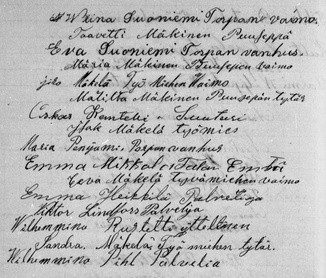 Wiina Suoniemi Torpan vaimo
Taavetti Mäkinen Puuseppä
Eva Suoniemi Torpan vanhus
Maria Mäkinen Puusepen vaimo
Mäkilä Työ Miehen Vaimo
Matilta Mäkinen Puusepän tytär
Oskar Kentelä Suutari
Isak Mäkelä työmies
Maria Penjami vanhus
Emma Mikkola Talon Emäntä
Eeva Mäkelä työmiehen vaimo
Emma Heikkilä Palvelija
Viktor Lindfors Palvelija
Welhemmino
Sandra Mäkelä Työ miehen tytär
Welhemmino Pihl Palvelia